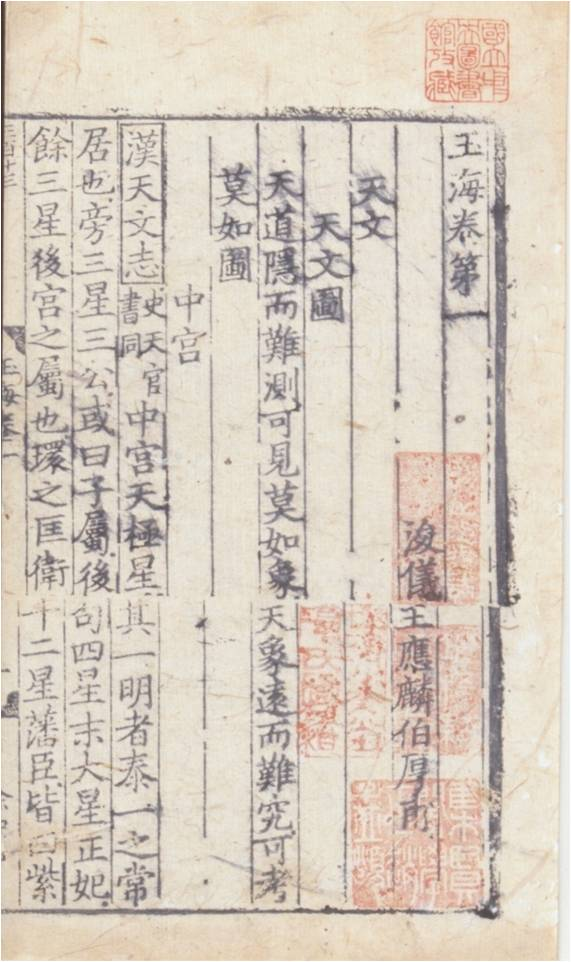 玉海卷第一
浚儀王應麟伯厚甫
天文
天文圖
天道隱而難測可見莫如象天象遠而難究可考
莫如圖
中宮
漢天文志史天官書同中宮天極星其一明者泰一之常
居也旁三星三公或曰子屬後句四星末大星正妃
餘三星後宮之屬也環之匡衛十二星藩臣皆曰紫